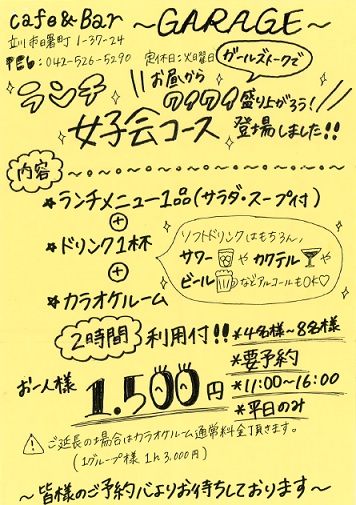 cafe & Bar ～GARAGE～
立川市曙町 1-37-24
☎：042-526-5290 定休日：火曜日
ガールズトークで
お昼から
ランチ ワイワイ盛り上がろう！
女子会コース 登場しました!!
内容
★ランチメニュー1品(サラダ・スープ付)
⊕
★ドリンク1杯
⊕
★カラオケルーム
ソフトドリンクはもちろん、
サワーやカクテルや
ビールなどアルコールもOK♡
2時間 利用付!!
＊4名様～8名様
＊要予約
＊11:00～16:00
＊平日のみ
お一人様 1.500円
⚠ご延長の場合はカラオケルーム通常料金頂きます。
(1グループ様 1h 3,000円)
～皆様のご予約心よりお待ちしております～